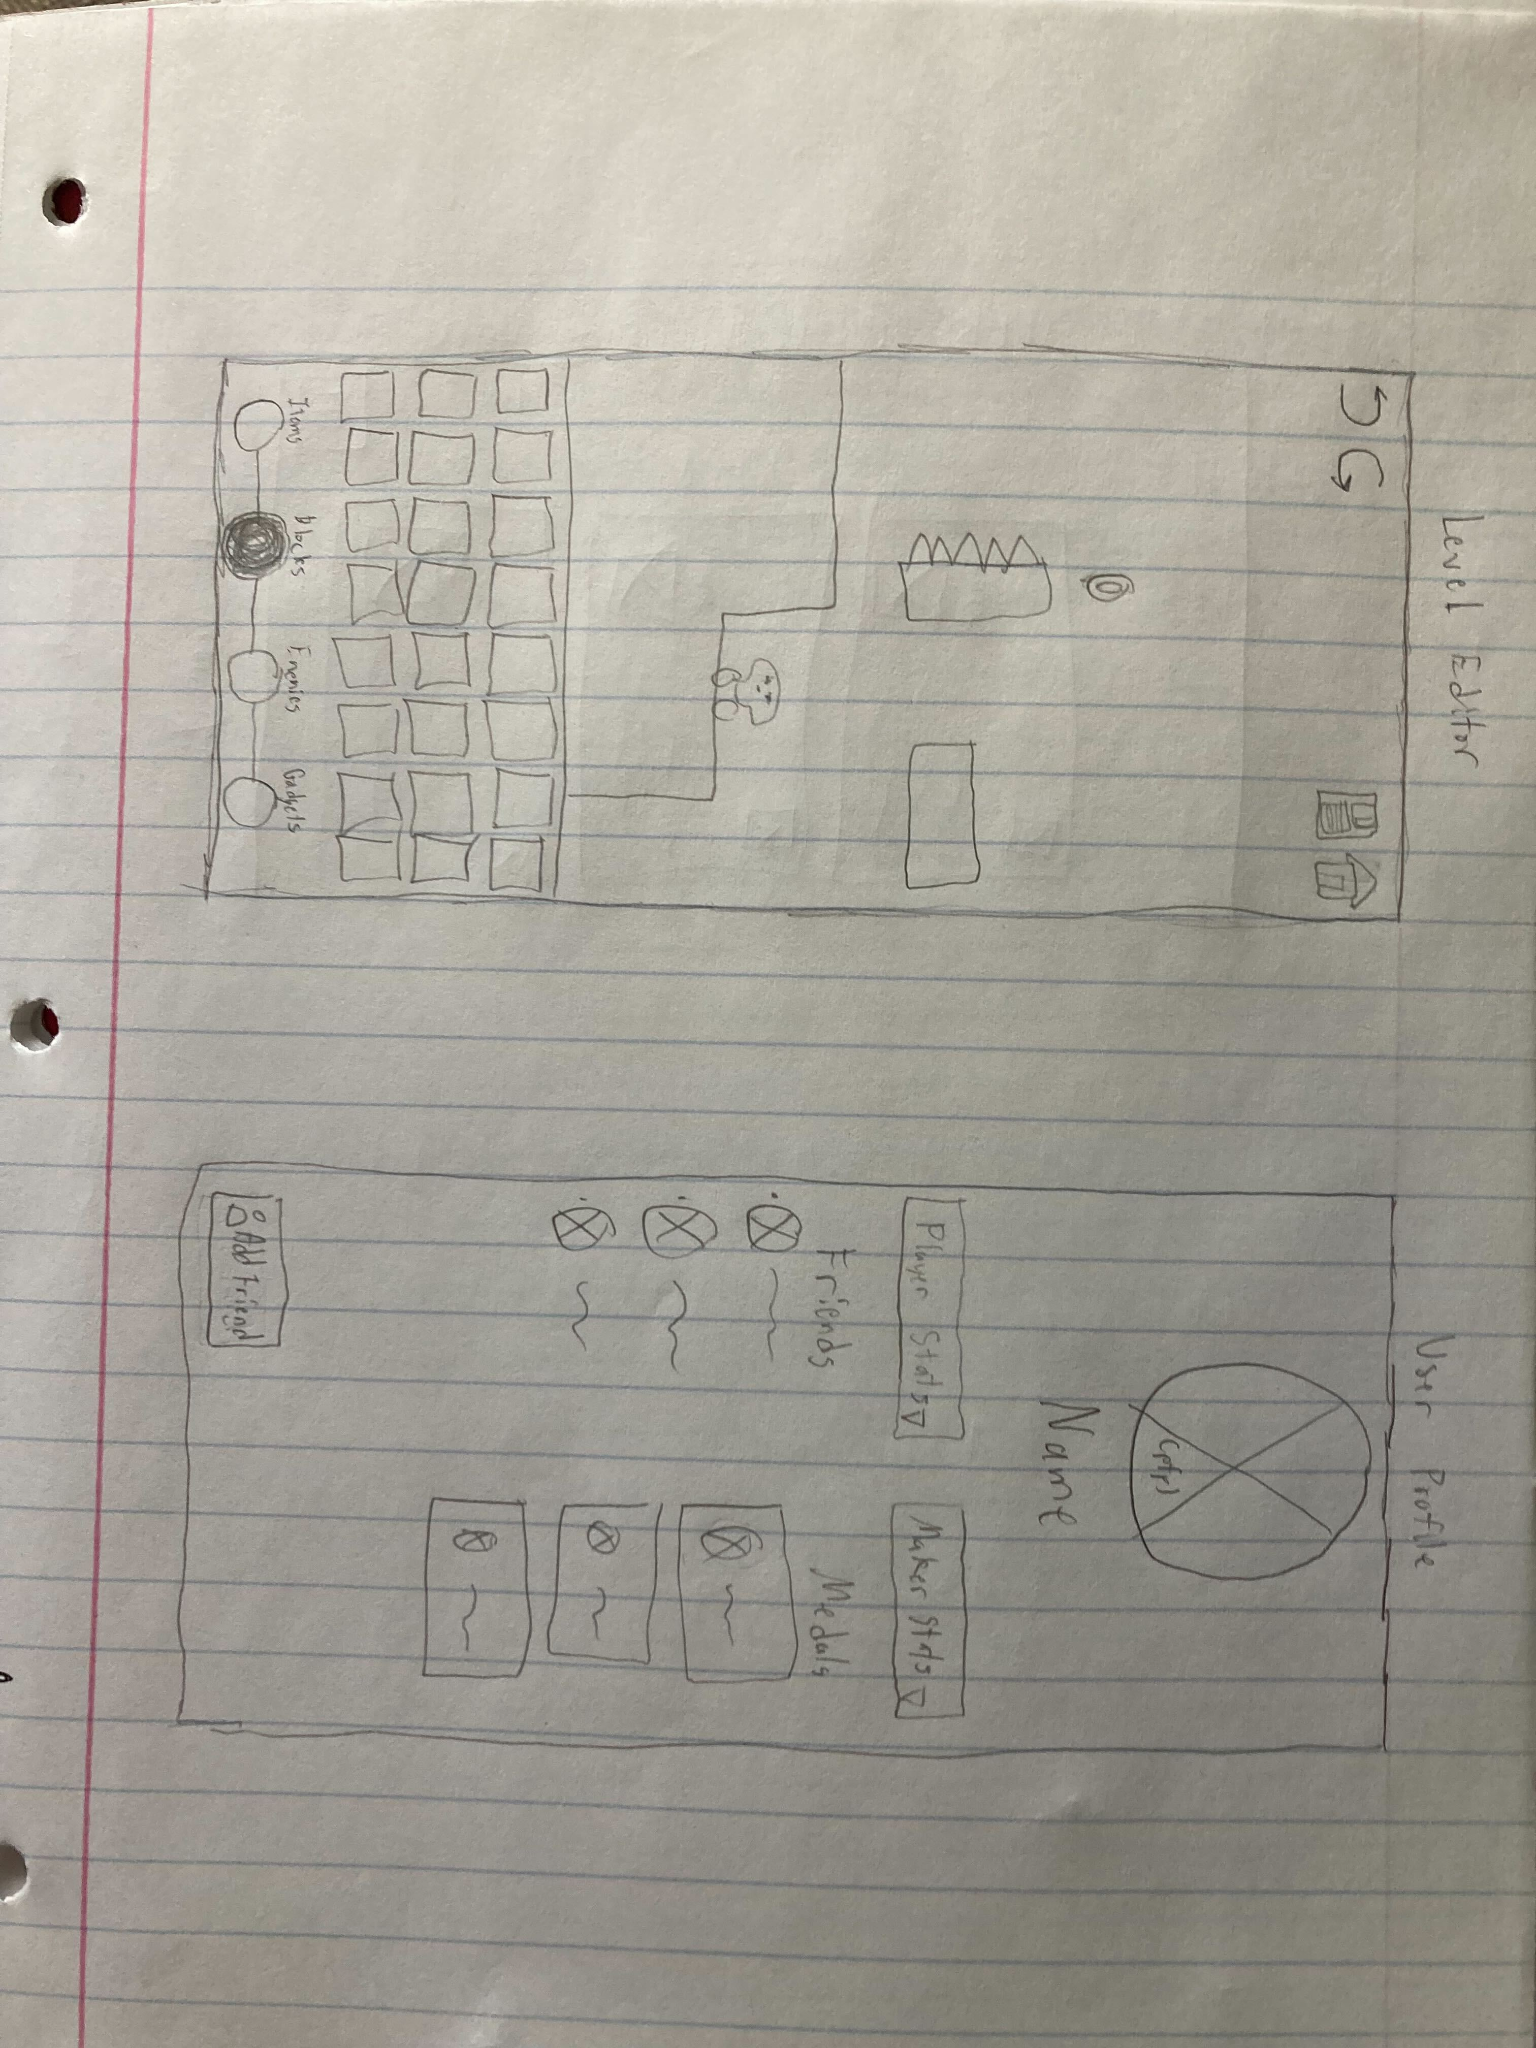 Level Editor
Items
Blocks
Enemies
Gadgets
User Profile
Name
Player Stats
Maker Stats
Friends
Medals
Add Friend